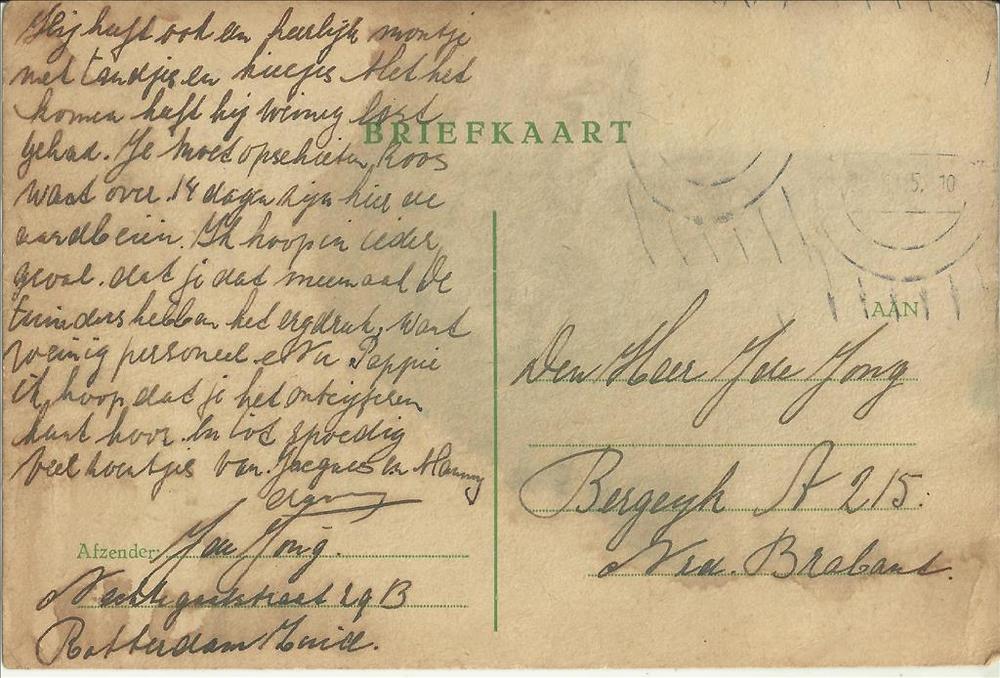 Hij heeft ook een heerlijk montje
met tandjes en kiesjes Met het
komen heeft hij weinig last
gehad. Je moet opschieten, Koos
want over 14 dagen zijn hier de
aardbeien. Ik hoop in ieder
geval dat je dat meemaakt De
tuinders hebben het erg druk, want
weinig personeel. Nu Pappie
ik hoop dat je het ontcijferen
kunt hoor. En tot spoedig
veel zoentjes van Jacques en Manny
BRIEFKAART
5. 10
AAN
Den Heer J de Jong
Bergeyk A 215.
Nrd. Brabant.
Afzender: J de Jong.
29 B
Rotterdam Zuid.